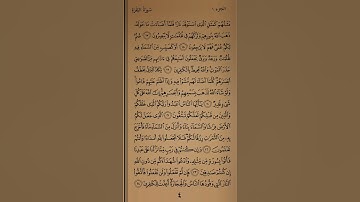 الجزء ١ سورة البقرة
مَثَلُهُمْ كَمَثَلِ الَّذِي اسْتَوْقَدَ نَارًا فَلَمَّا أَضَاءَتْ مَا حَوْلَهُ
ذَهَبَ اللَّهُ بِنُورِهِمْ وَتَرَكَهُمْ فِي ظُلُمَٰتٍ لَّا يُبْصِرُونَ ١٧ صُمٌّ
بُكْمٌ عُمْيٌ فَهُمْ لَا يَرْجِعُونَ ١٨ أَوْ كَصَيِّبٍ مِّنَ السَّمَاءِ فِيهِ
ظُلُمَٰتٌ وَرَعْدٌ وَبَرْقٌ يَجْعَلُونَ أَصَٰبِعَهُمْ فِي ءَاذَانِهِم مِّنَ
الصَّوَٰعِقِ حَذَرَ الْمَوْتِ وَاللَّهُ مُحِيطٌ بِالْكَٰفِرِينَ ١٩ يَكَادُ الْبَرْقُ يَخْطَفُ
أَبْصَٰرَهُمْ كُلَّمَا أَضَاءَ لَهُم مَّشَوْا فِيهِ وَإِذَا أَظْلَمَ عَلَيْهِمْ قَامُوا
وَلَوْ شَاءَ اللَّهُ لَذَهَبَ بِسَمْعِهِمْ وَأَبْصَٰرِهِمْ إِنَّ اللَّهَ عَلَىٰ كُلِّ
شَيْءٍ قَدِيرٌ ٢٠ يَٰأَيُّهَا النَّاسُ اعْبُدُوا رَبَّكُمُ الَّذِي خَلَقَكُمْ
وَالَّذِينَ مِن قَبْلِكُمْ لَعَلَّكُمْ تَتَّقُونَ ٢١ الَّذِي جَعَلَ لَكُمُ
الْأَرْضَ فِرَٰشًا وَالسَّمَاءَ بِنَاءً وَأَنزَلَ مِنَ السَّمَاءِ مَاءً فَأَخْرَجَ
بِهِ مِنَ الثَّمَرَٰتِ رِزْقًا لَّكُمْ فَلَا تَجْعَلُوا لِلَّهِ أَندَادًا وَأَنتُمْ
تَعْلَمُونَ ٢٢ وَإِن كُنتُمْ فِي رَيْبٍ مِّمَّا نَزَّلْنَا عَلَىٰ عَبْدِنَا
فَأْتُوا بِسُورَةٍ مِّن مِّثْلِهِ وَادْعُوا شُهَدَاءَكُم مِّن دُونِ اللَّهِ
إِن كُنتُمْ صَٰدِقِينَ ٢٣ فَإِن لَّمْ تَفْعَلُوا وَلَن تَفْعَلُوا فَاتَّقُوا
النَّارَ الَّتِي وَقُودُهَا النَّاسُ وَالْحِجَارَةُ أُعِدَّتْ لِلْكَٰفِرِينَ ٢٤
٤